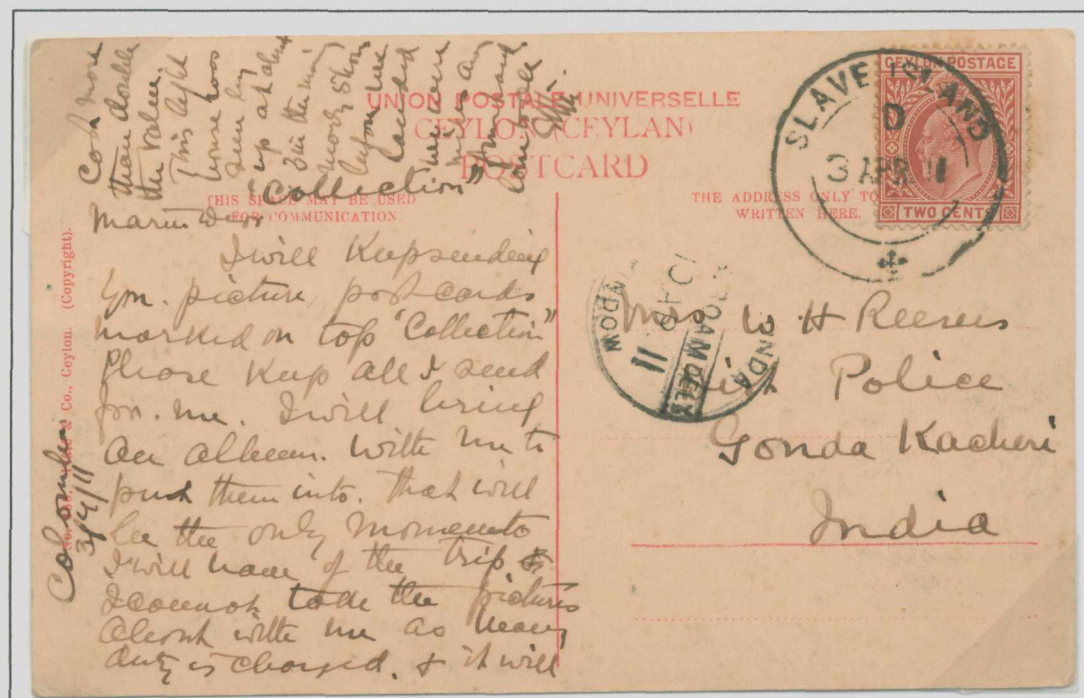 UNION POSTALE UNIVERSELLE
CEYLON (CEYLAN)
POSTCARD
THIS SPACE MAY BE USED
FOR COMMUNICATION.
THE ADDRESS ONLY TO
WRITTEN HERE.
CEYLON POSTAGE
TWO CENTS
SLAVE ISLAND
D
3 APR 11
GONDA
11
& Co., Ceylon. (Copyright).
Colombo
3/4/11
"Collection"
I will Keep sending
you. picture postcards
marked on top "Collection"
Please Keep all I send
for. me. I will bring
an album. with me to
put them into. that will
be the only momento
I will have of the trip &
I cannot take the pictures
about with me as heavy
duty is charged. & it will
cost more
than double
the value.
This light
house was
seen by
up at about
3 in the morning
before we
landed
Mrs W. H Reeves
Police
Gonda Kacheri
India